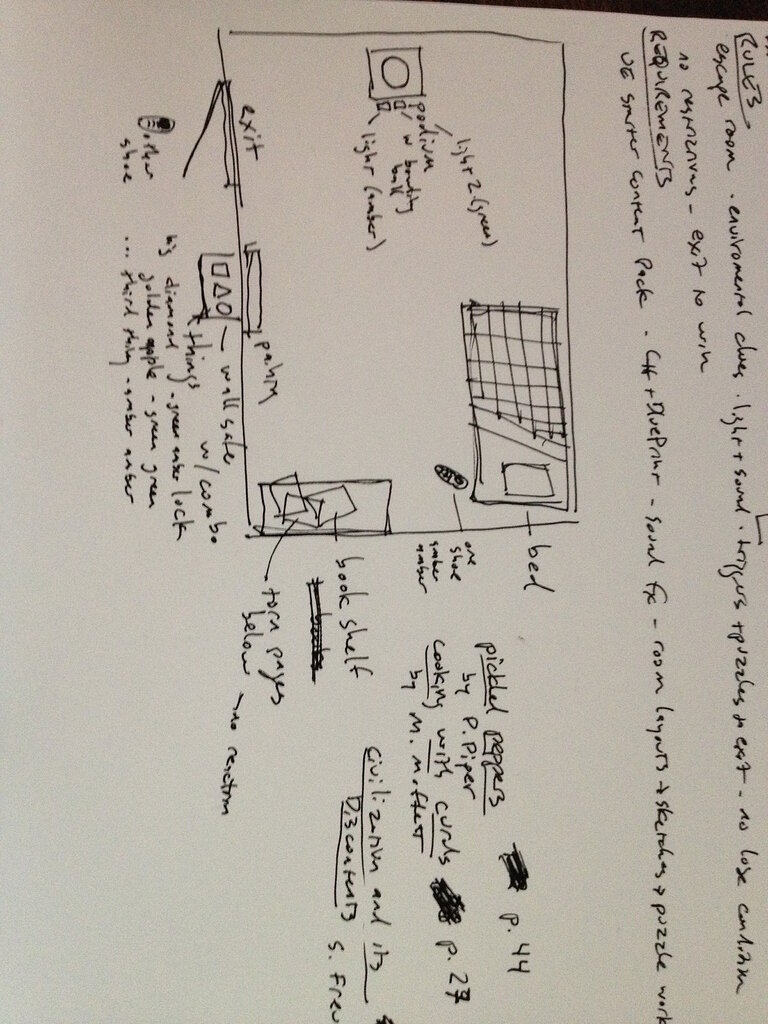 RULES
escape room . enviromental clues . light + sound . triggers + puzzles to exit - no lose condition
no restrictions - exit to win
REQUIREMENTS
UE starter content pack . C++ + BluePrint - sound fx - room layouts + sketches + puzzle work
podium
w bowling
ball
light 2 (green)
light (amber)
exit
other
shoe
painting
wall safe
w/combo
lock
things
big diamond - green amber
golden apple - green green
... third thing - amber amber
bed
one
shoe
amber
amber
book shelf
torn pages
below → no reaction
pickled peppers
by P. Piper
p. 44
cooking with curds
by M. Moffett
p. 27
Civilization and its
Discontents
S. Freu